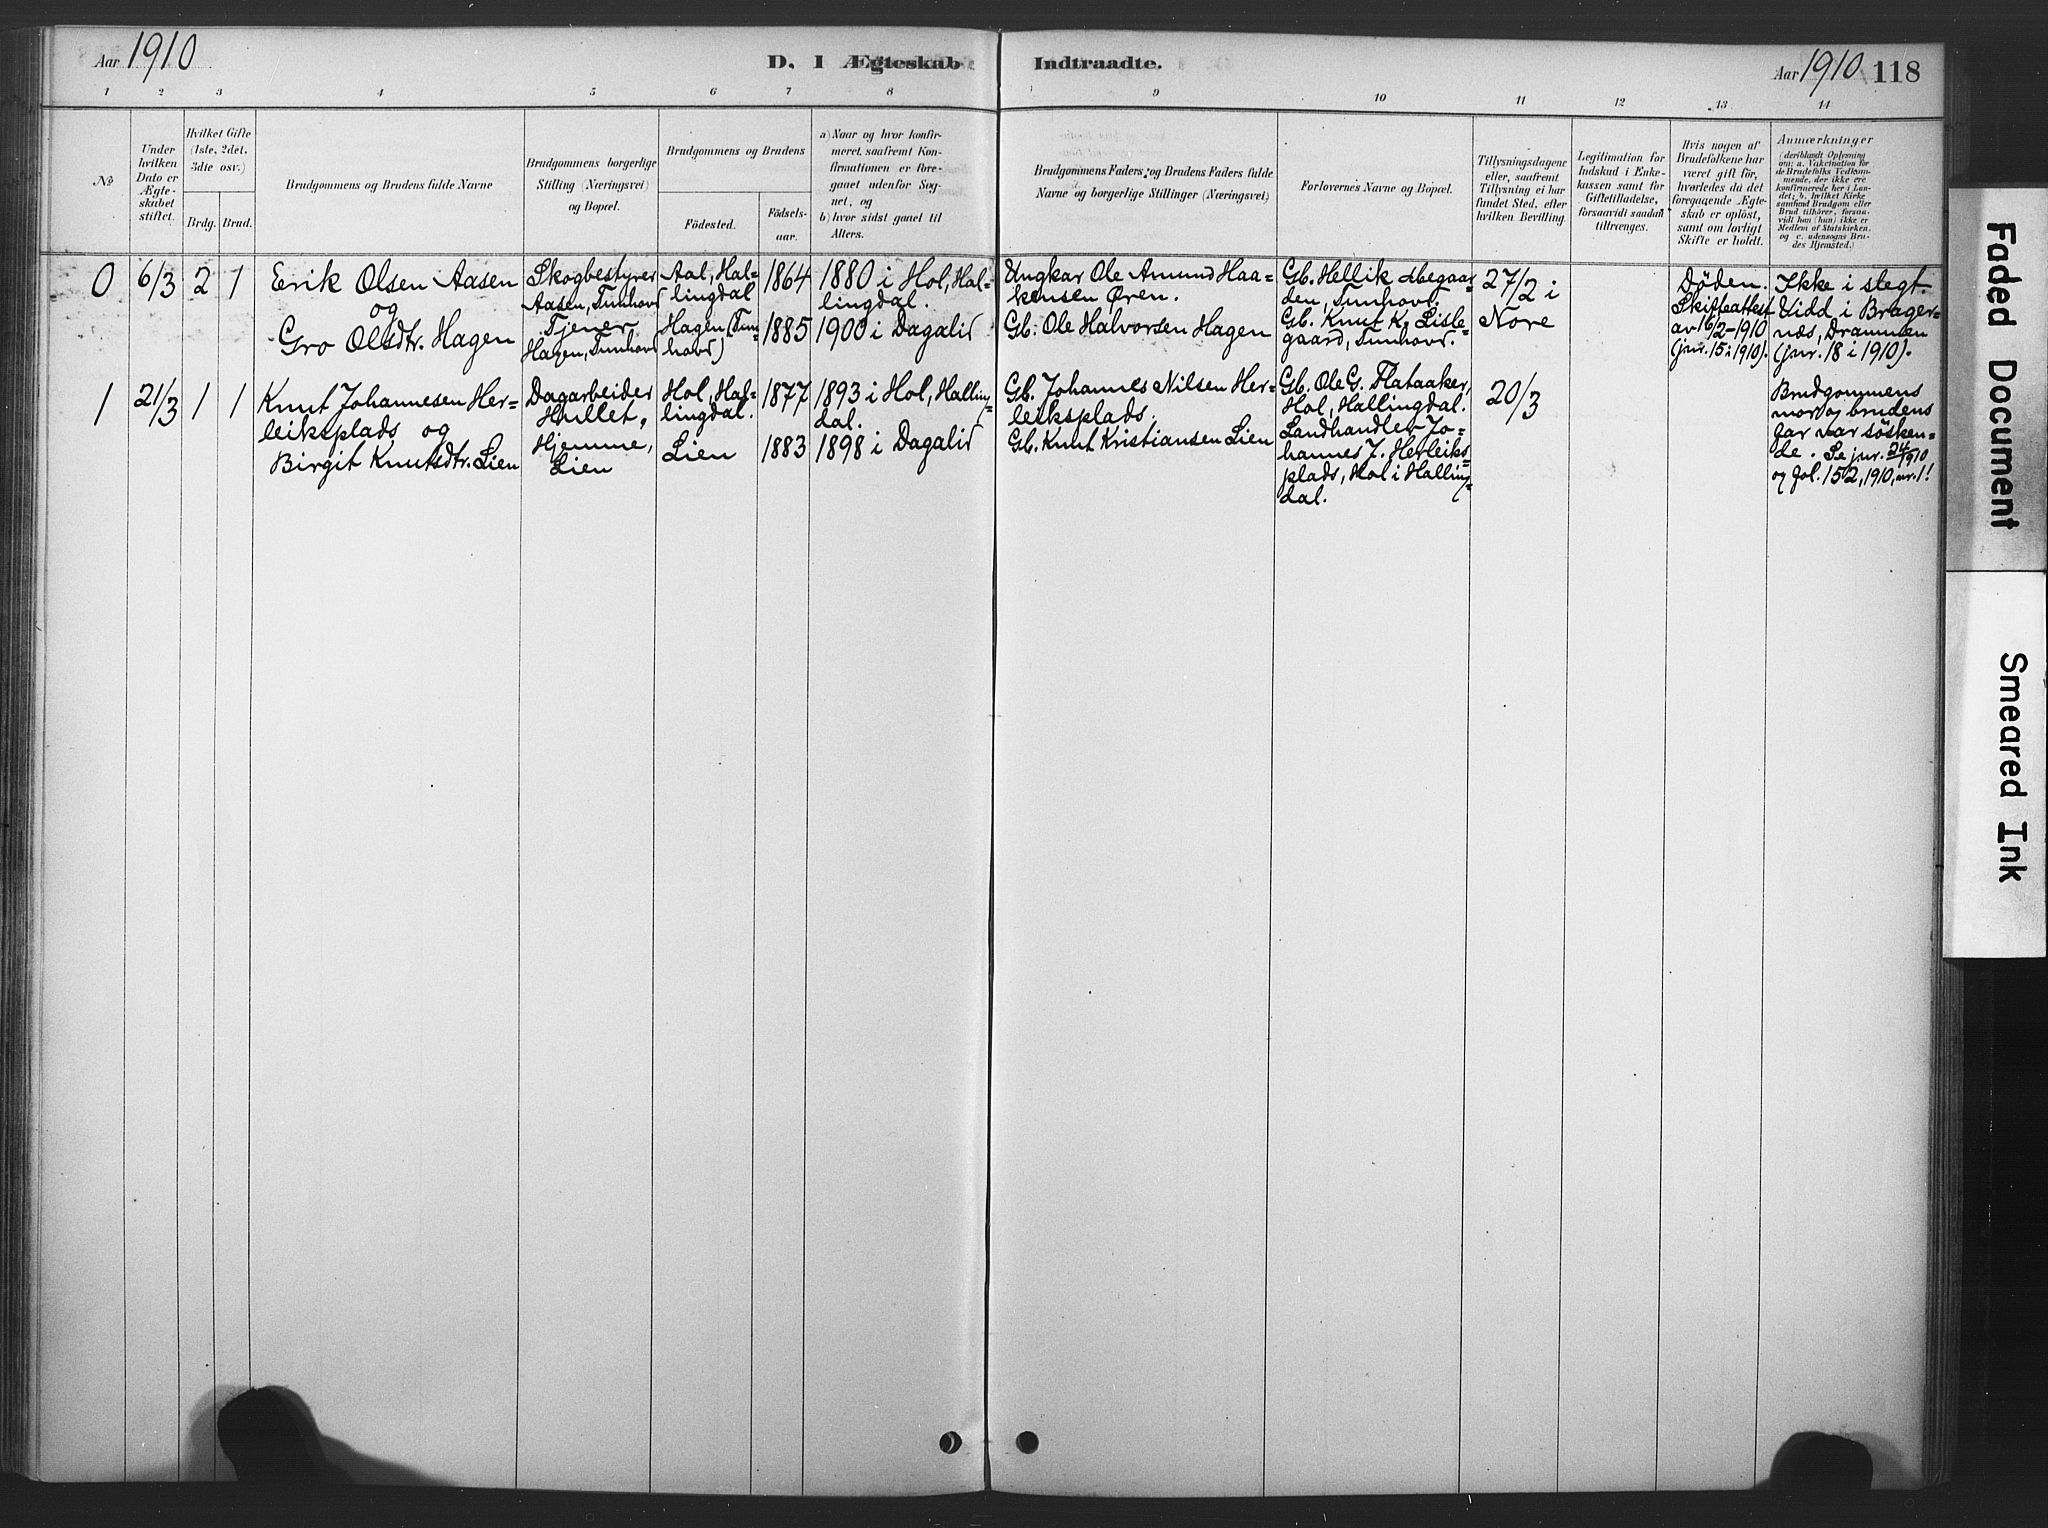 Aar 1910
D. I Ægteskab Indtraadte.
Aar 1910 118
1 2 3 4 5 6 7 8 9 10 11 12 13 14
No
Under
hvilken
Dato er
Ægte-
skabet
stiftet.
Hvilket Gifte
(1ste, 2det,
3die osv.)
Brdg. Brud.
Brudgommens og Brudens fulde Navne
Brudgommens borgerlige
Stilling (Næringsvei)
og Bopæl.
Brudgommens og Brudens
Födested.
Födsels-
aar.
a) Naar og hvor konfir-
meret, saafremt Kon-
firmationen er fore-
gaaet udenfor Sog-
net, og
b) hvor sidst gaaet til
Alters.
Brudgommens Faders og Brudens Faders fulde
Navne og borgerlige Stillinger (Næringsvei)
Forlovernes Navne og Bopæl.
Tillysningsdagene
eller, saafremt
Tillysning ei har
fundet Sted, efter
hvilken Bevilling.
Legitimation for
Indskud i Enke-
kassen samt for
Giftetilladelse,
forsaavidt saadan
tiltrænges.
Hvis nogen af
Brudefolkene har
været gift för,
hvorledes da det
foregaaende Ægte-
skab er oplöst,
samt om lovligt
Skifte er holdt.
Anmærkninger
(deriblandt Oplysning
om: a. Vakcination for
de Brudefolks Vedkom-
mende, der ikke ere
konfirmerede her i Lan-
det; b. hvilket Kirke-
samfund Brudgom eller
Brud tilhörer, forsaa-
vidt han (hun) ikke er
Medlem af Statskirken,
og c. udensogns Bru-
des Hjemsted.)
0 6/3 2 1
Erik Olsen Aasen
og
Gro Olsdtr. Hagen
Skogbestyrer
Aasen, Tunhovd
Tjener,
Hagen, Tunhovd
Aal, Hal-
lingdal
Hagen (Tun-
hovd)
1864
1885
1880 i Hol, Hal-
lingdal.
1900 i Dagalid
Ungkar Ole Amund Haa-
kensen Øren.
Gb. Ole Halvorsen Hagen
Gb. Hellik
den, Tunhovd.
Gb. Knut K. Lisle-
gaard, Tunhovd.
27/2 i
Nore
Døden.
Skifteattest
av 16/2-1910
(jnr. 15 i 1910).
Ikke i slegt.
Vidd i Brager-
næs, Drammen
(jnr. 18 i 1910).
1 21/3 1 1
Knut Johannesen Her-
leiksplads og
Birgit Knutsdtr. Lien
Dagarbeider
Hullet,
Hjemme,
Lien
Hol, Hal-
lingdal.
Lien
1877
1883
1893 i Hol, Halling-
dal.
1898 i Dagalid
Gb. Johannes Nilsen Her-
leiksplads.
Gb. Knut Kristiansen Lien
Gb. Ole G. Flataaker,
Hol, Hallingdal.
Landhandler Jo-
hannes J. Herleiks-
plads, Hol i Halling-
dal.
20/3
Brudgommens
mor og brudens
far var søsken-
de. Se jnr. 24/1910
og fol. 152, 1910, nr. 1!
Faded Document
Smeared Ink